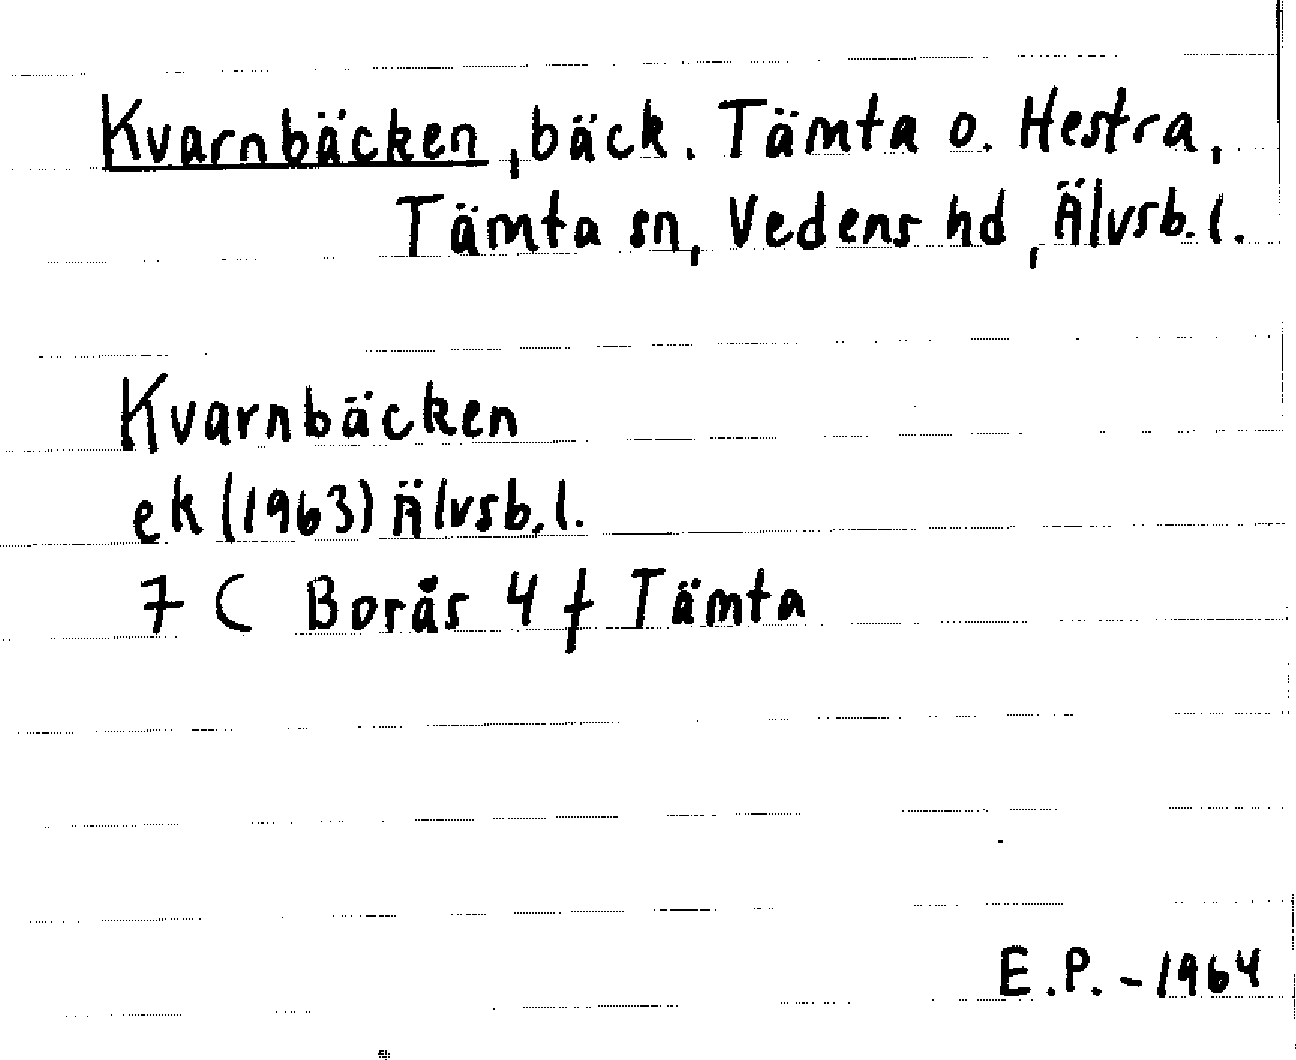 Kvarnbäcken, bäck. Tämta o. Hestra,
Tämta sn, Vedens hd, Älvsb. l.
Kvarnbäcken
ek (1963) Älvsb. l.
7 C Borås 4 f Tämta
E.P. - 1964